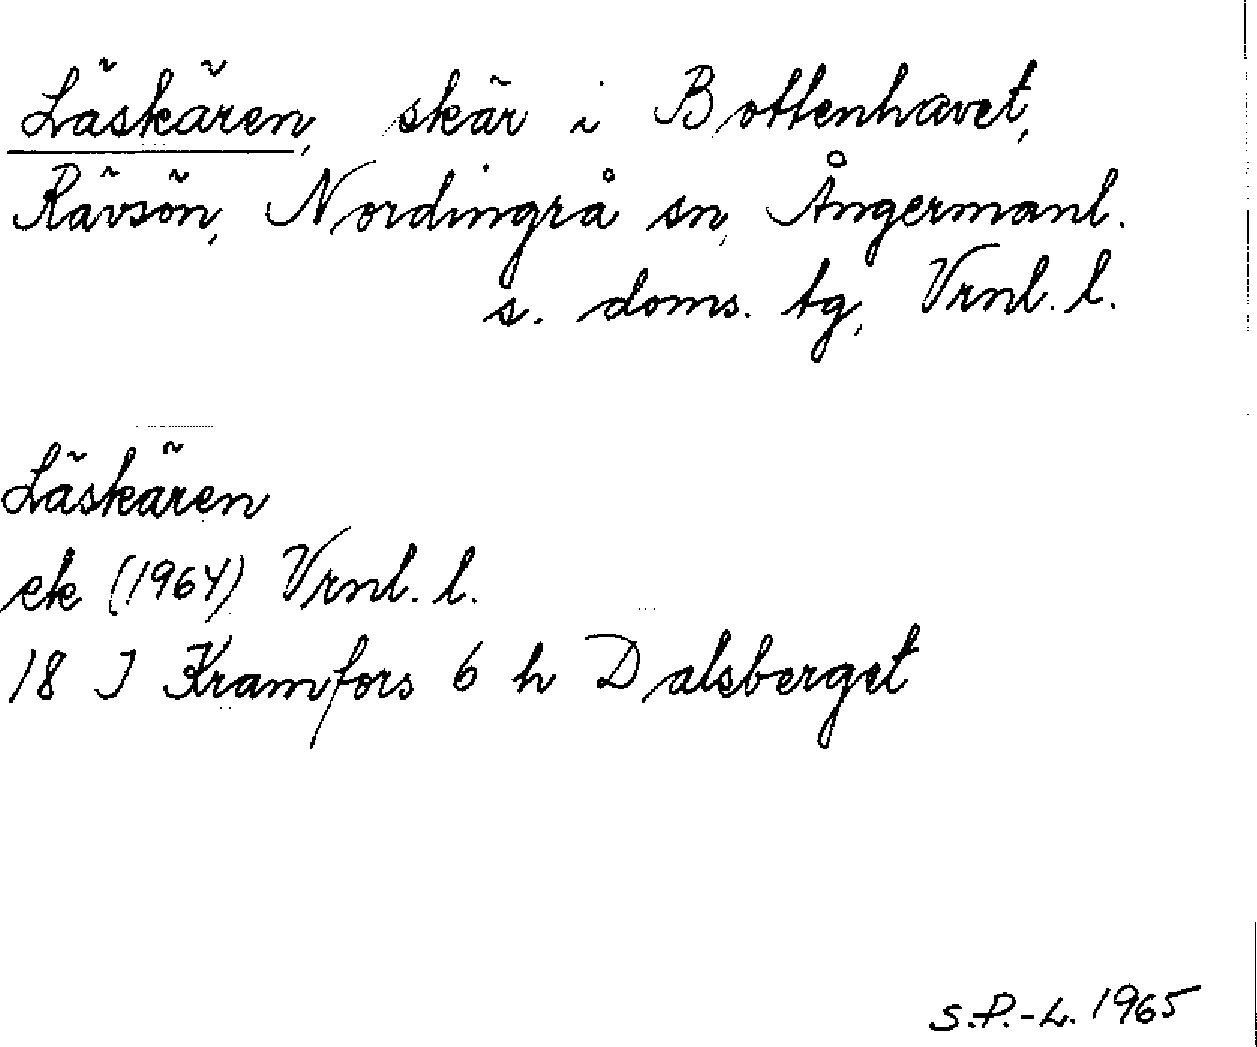 Läskären, skär i Bottenhavet,
Rävsön, Nordingrå sn, Ångermanl.
s. doms. tg, Vrnl. l.
Läskären
ek (1964) Vrnl. l.
18 I Kramfors 6 h Dalsberget
S.P.-L. 1965